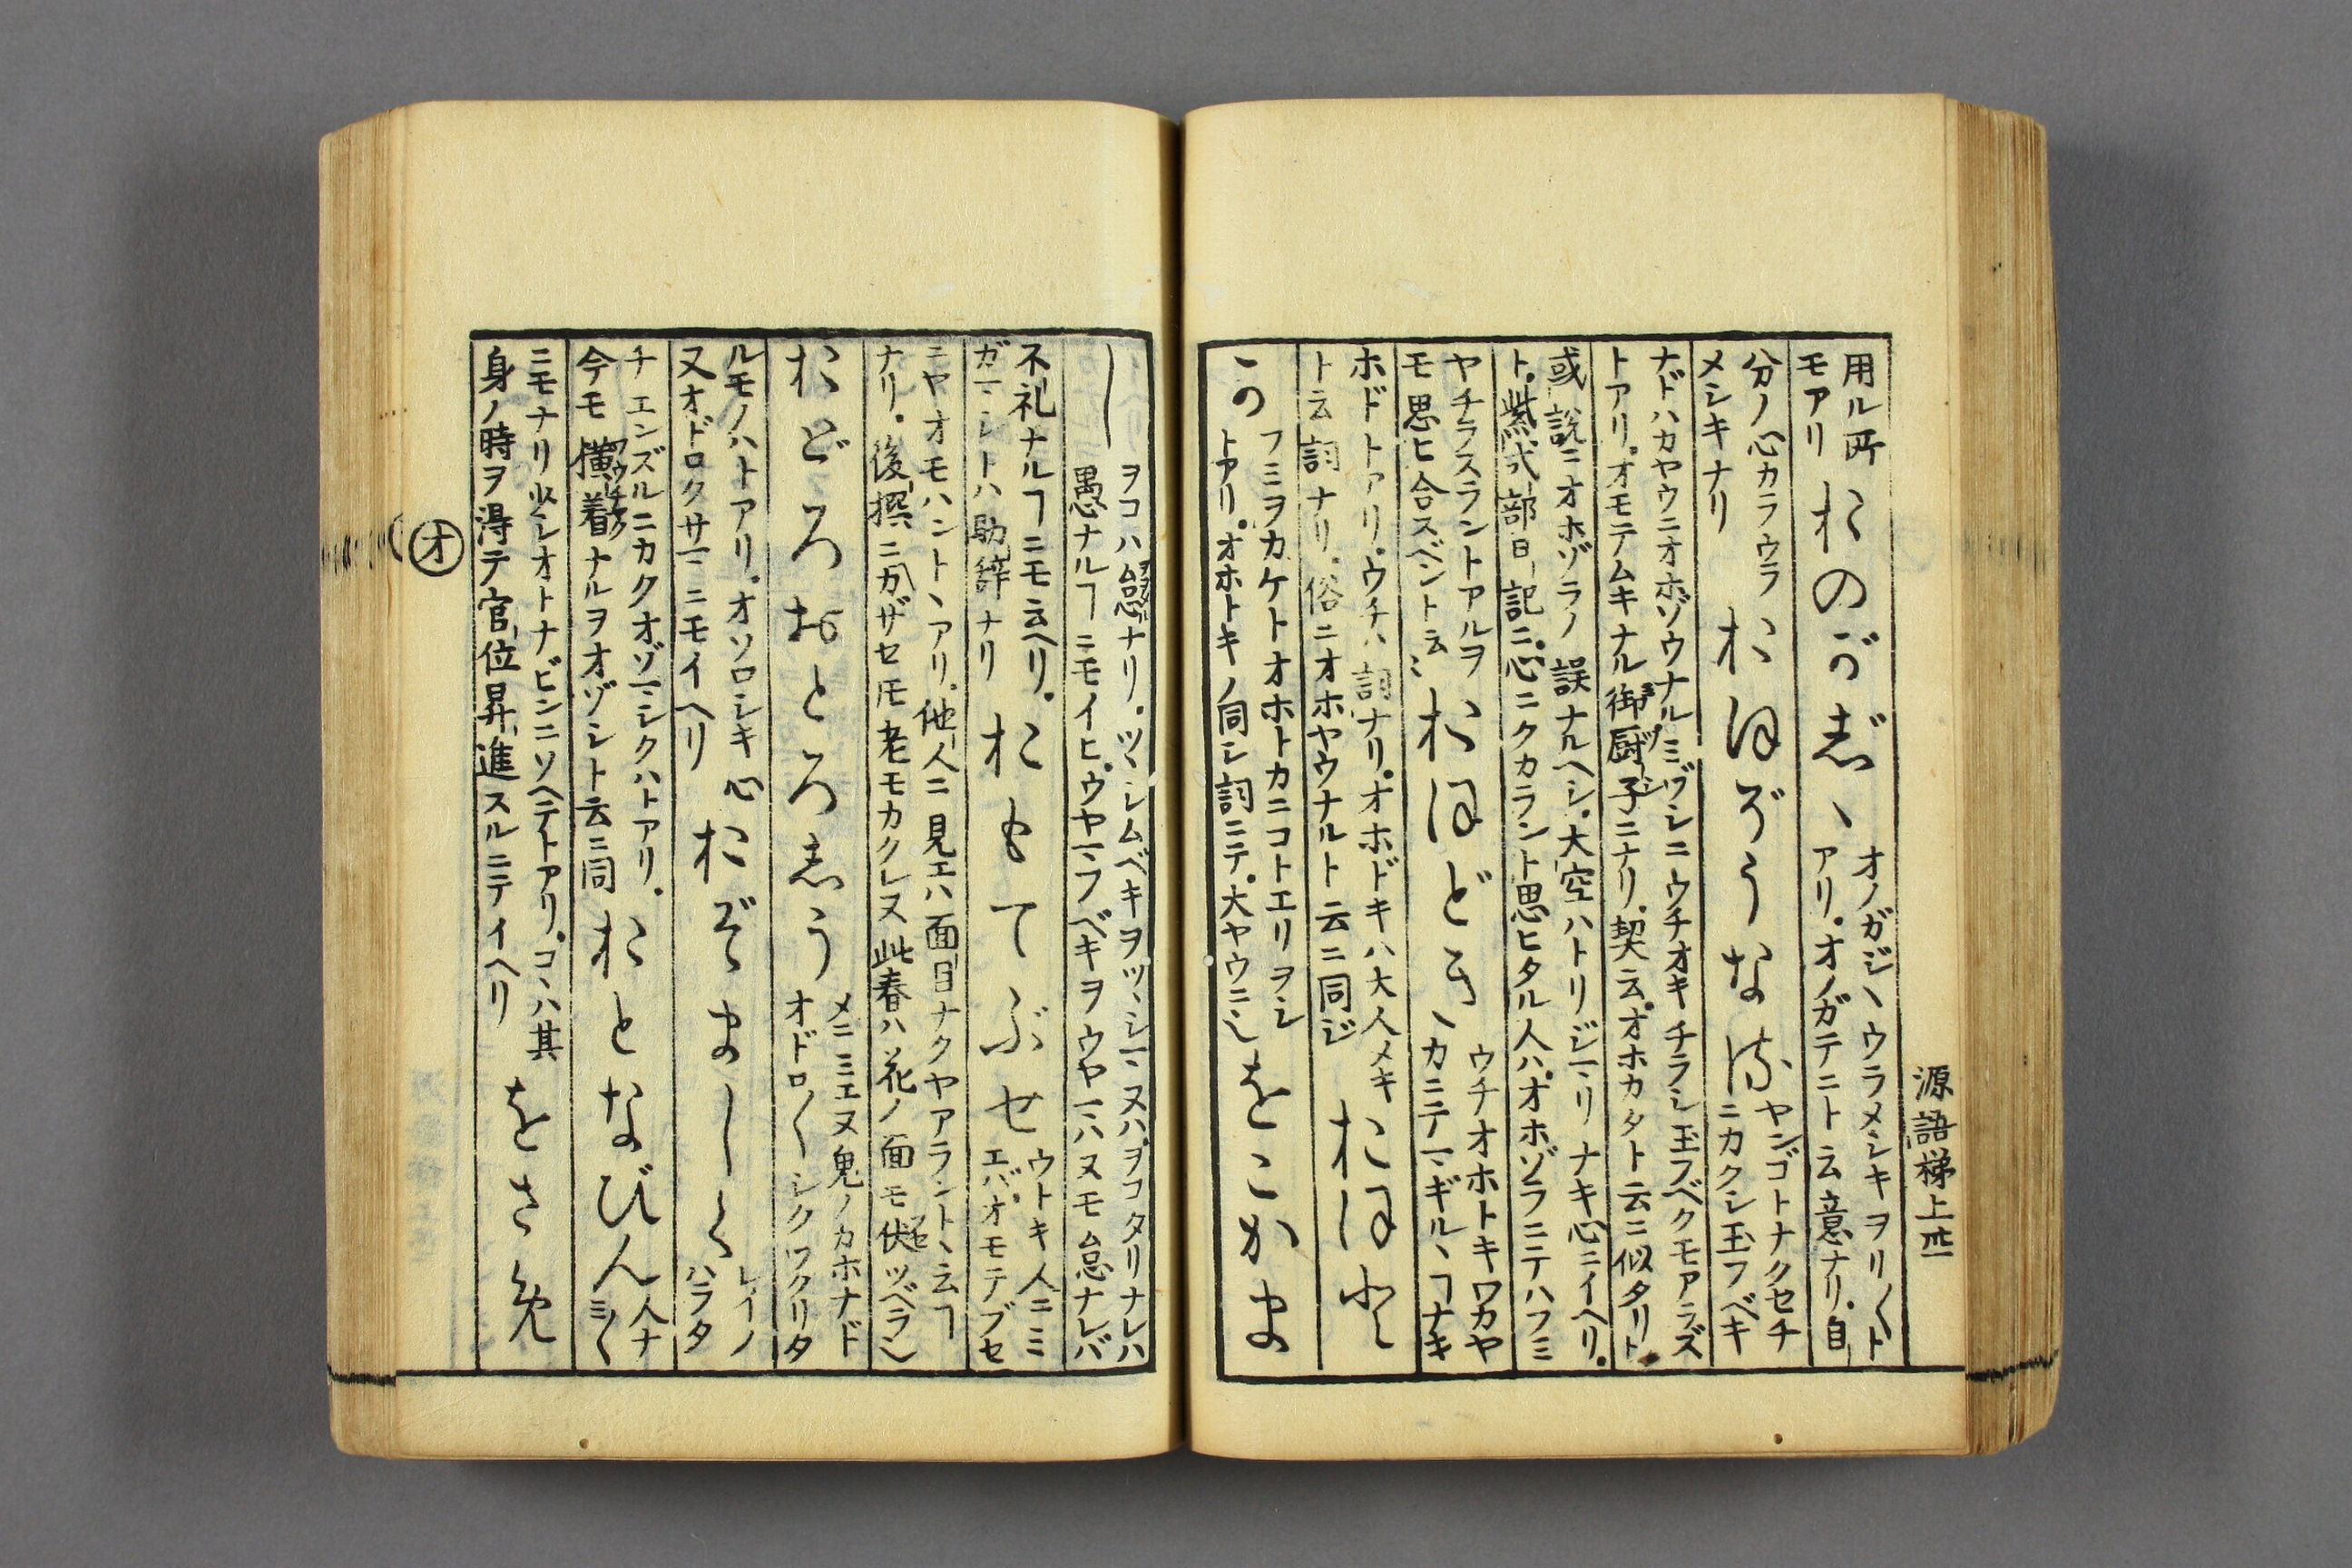 源語梯上
用ル所
モアリ
おのがじゝ
オノガジヽウラメシキヲリ〳〵ト
アリ。オノガテニト云意ナリ。自
分ノ心カラウラ
メシキナリ
おほぞうなる
ヤンゴトナクセチ
ニカクシ玉フベキ
ナドハカヤウニオホゾウナルミヅシニウチオキチラシ玉フベクモアラズ
トアリ。オモテムキナル御厨子ニナリ。契云。オホカタト云ニ似タリト
或説ニオホゾラノ誤ナルヘシ。大空ハトリジマリナキ心ニイヘリ。
ト。紫式部日記ニ。心ニクカラント思ヒタル人ハ。オホゾラニテハフミ
ヤチラスラントアルヲ
モ思ヒ合スベシト云ミ
おほどきゝ
ウチオホトキワカヤ
カニテマギルヽヿナキ
ホドトアリ。ウチハ詞ナリ。オホドキハ大人メキ
ト云詞ナリ。俗ニオホヤウナルト云ニ同ジ
おほと
この
フミヲカケトオホトカニコトエリヲシ
トアリ。オホトキノ同シ詞ニテ。大ヤウニ〆
をこがま
し
ヲコハ怠ナリ。ツヽシムベキヲツヽシマヌハ。ヲコタリナレハ
愚ナルヿニモイヒ。ウヤマフベキヲウヤマハヌモ怠ナレバ
不礼ナルヿニモ云ヘリ。
ガマシトハ助辞ナリ
おもてぶせ
ウトキ人ニミ
エバ。オモテブセ
ニヤオモハントヽアリ。他人ニ見エハ面目ナクヤアラントヽ云ヿ
ナリ。後撰ニカザセ𪜈老モカクレヌ此春ハ花ノ面モ伏ツベラ也
おどろおどろしう
メニミエヌ鬼ノカホナド
オドロ〳〵シクツクリタ
ルモノハトアリ。オソロシキ心
又オドロクサマニモイヘリ
おぞまし〳〵
レイノ
ハラタ
チエンズルニカクオゾマシクハトアリ。
今モ横着ナルヲオゾシト云ニ同
おとなびん
人ナ
ミ〳〵
ニモナリ少シオトナビンニソヘテトアリ。コヽハ其
身ノ時ヲ得テ官位昇進スルニテイヘリ
をさめ
オ